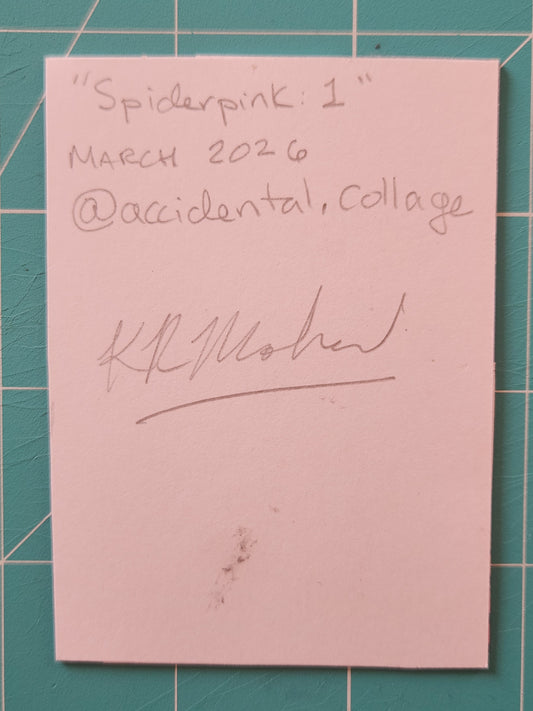 "Spiderpink: 1"
MARCH 2026
@accidental.collage